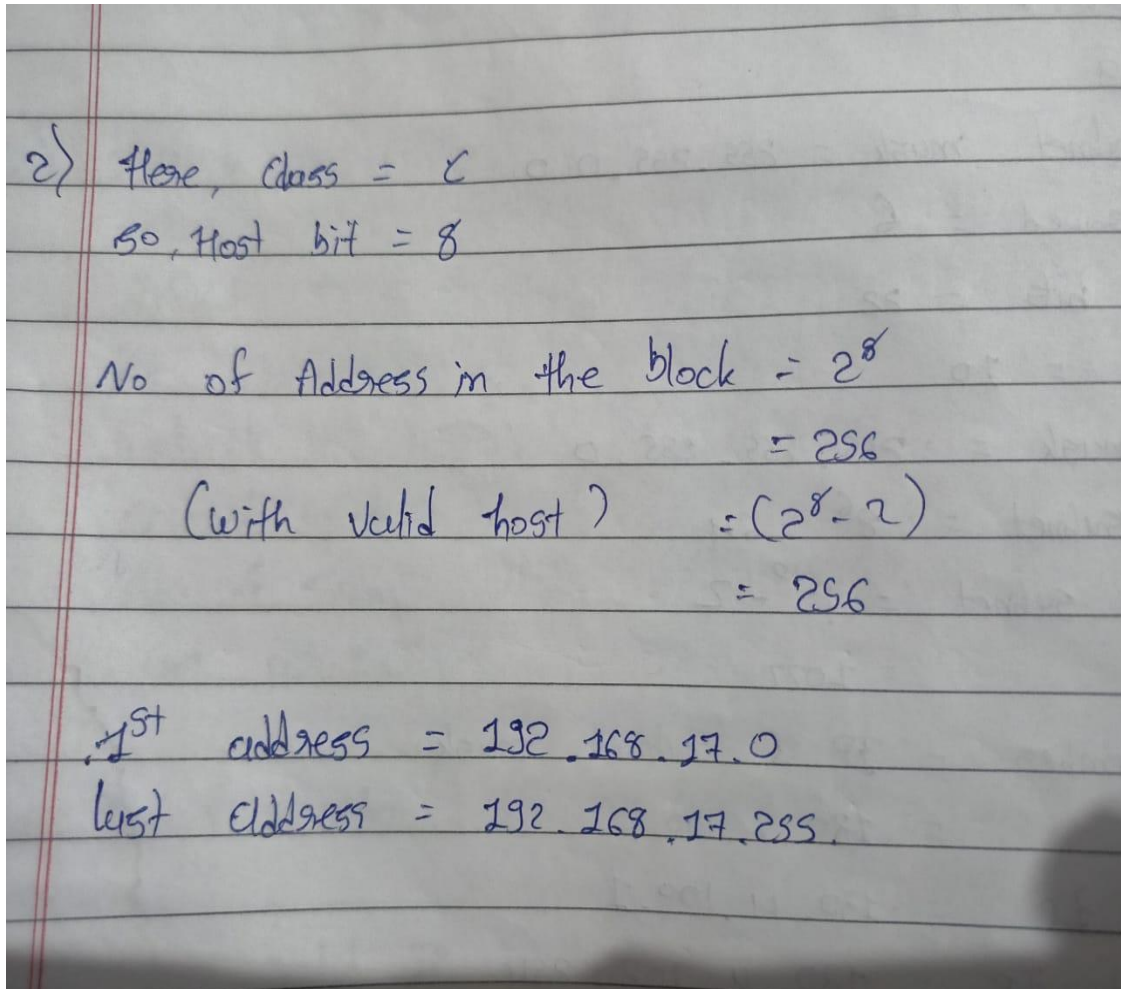 2) Here, Class = C
So, Host bit = 8
No of Address in the block = 2⁸
= 256
(with valid host) = (2⁸ - 2)
= 256
1st address = 192.168.17.0
last address = 192.168.17.255.